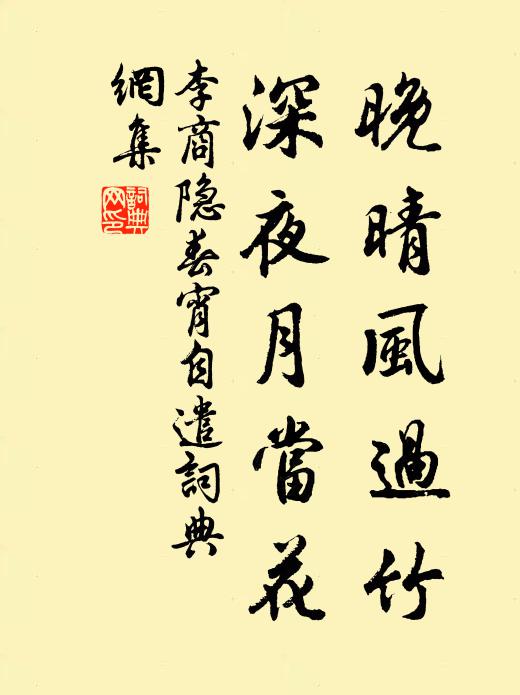 晚晴風過竹
深夜月當花
李商隐春宵自遣詞典
網集
詞典
网印